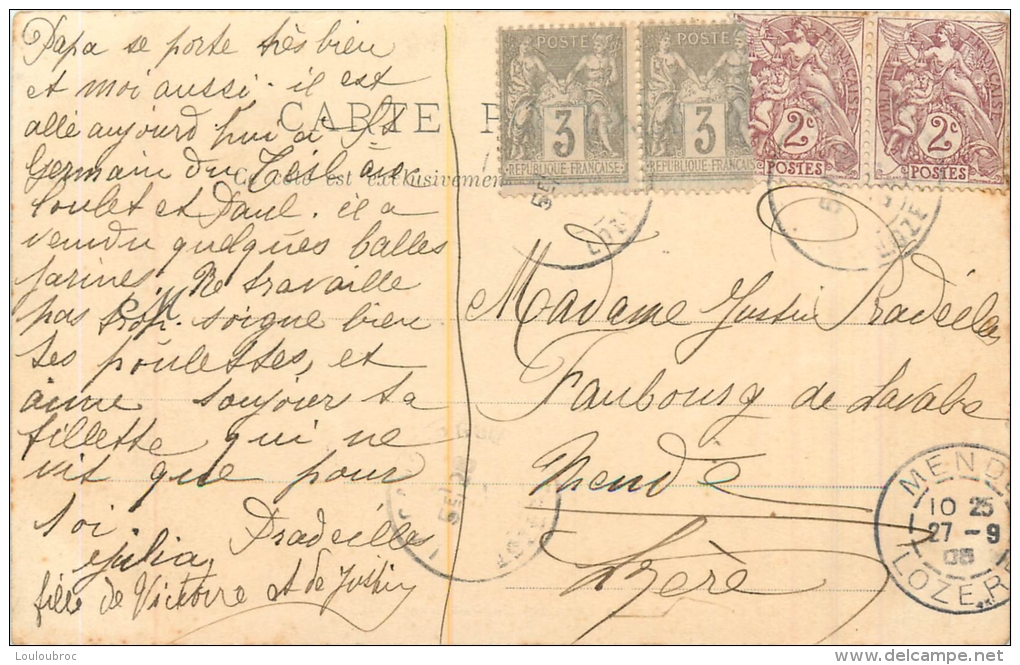 Papa se porte très bien
et moi aussi. il est
allé aujourd'hui à St
Germain du Teil avec
Loulet et Paul. il a
vendu quelques balles
farines. Ne travaille
pas trop. soigne bien
tes poulettes, et
aime toujours ta
fillette qui ne
vit que pour
toi.
Pradeilles
Julia
fille de Victoire et de Justin
CARTE P
Ce côté est exclusivement
POSTE
3
RÉPUBLIQUE FRANÇAISE
POSTE
3
RÉPUBLIQUE FRANÇAISE
2c
POSTES
2c
POSTES
Madame Justin Pradeilles
Faubourg de
Mende
Lozère
MENDE
10 25
27 - 9
05
LOZERE
Louloubroc
delcampe.net